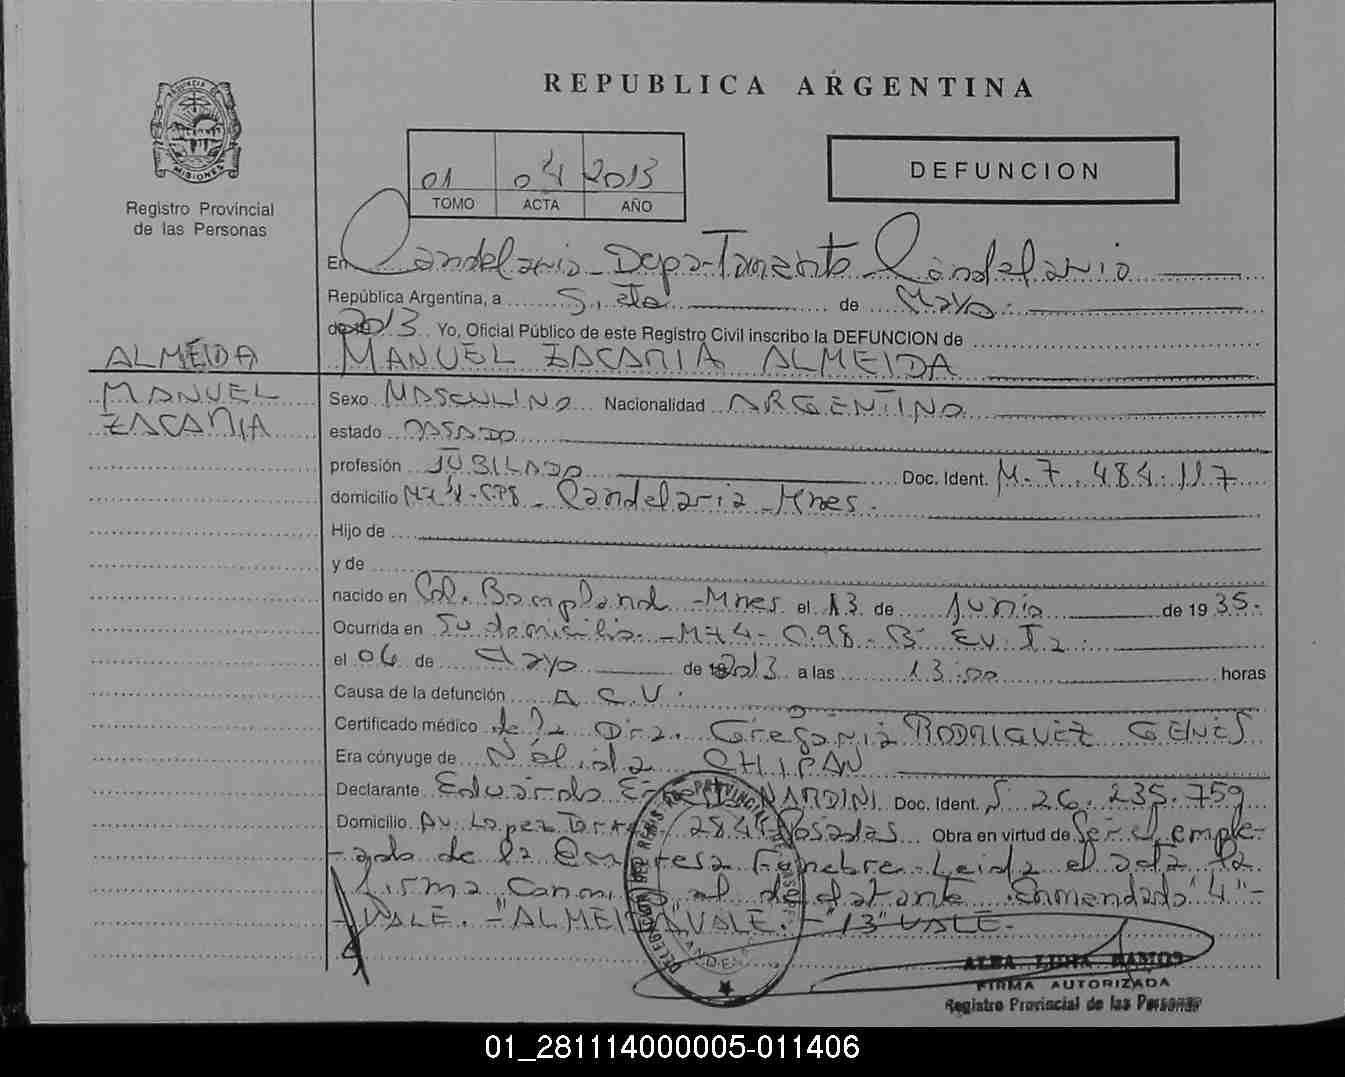 REPUBLICA ARGENTINA
PROVINCIA DE
MISIONES
Registro Provincial
de las Personas
01 04 2013
TOMO ACTA AÑO
DEFUNCION
En Candelaria - Departamento Candelaria
República Argentina, a Siete de Mayo
de 2013 Yo, Oficial Público de este Registro Civil inscribo la DEFUNCION de
MANUEL ZACARIA ALMEIDA
ALMEIDA
MANUEL
ZACARIA
Sexo MASCULINO Nacionalidad ARGENTINO
estado CASADO
profesión JUBILADO Doc. Ident. M. 7.484.117
domicilio Mz 4 - C98 - Candelaria - Mnes.
Hijo de
y de
nacido en Col. Bompland - Mnes el 13 de Junio de 1935.
Ocurrida en Su domicilio - Mz 4 - C.98 - B
el 06 de Mayo de 2013 a las 13:00 horas
Causa de la defunción A.C.V.
Certificado médico de la Dra. Gregoria RODRIGUEZ GENES
Era cónyuge de Nélida CHIPAN
Declarante Eduardo NARDINI Doc. Ident. 26.235.759
Domicilio Av. Lopez Torres 2844 Posadas Obra en virtud de Ser el emple-
ado de la Empresa Funebre. Leida el acta la
firma conmigo el declarante. Enmendado "4" -
VALE. - "ALMEIDA" VALE. - "13" VALE.
ALBA LIDIA RAMOS
FIRMA AUTORIZADA
Registro Provincial de las Personas
01_281114000005-011406